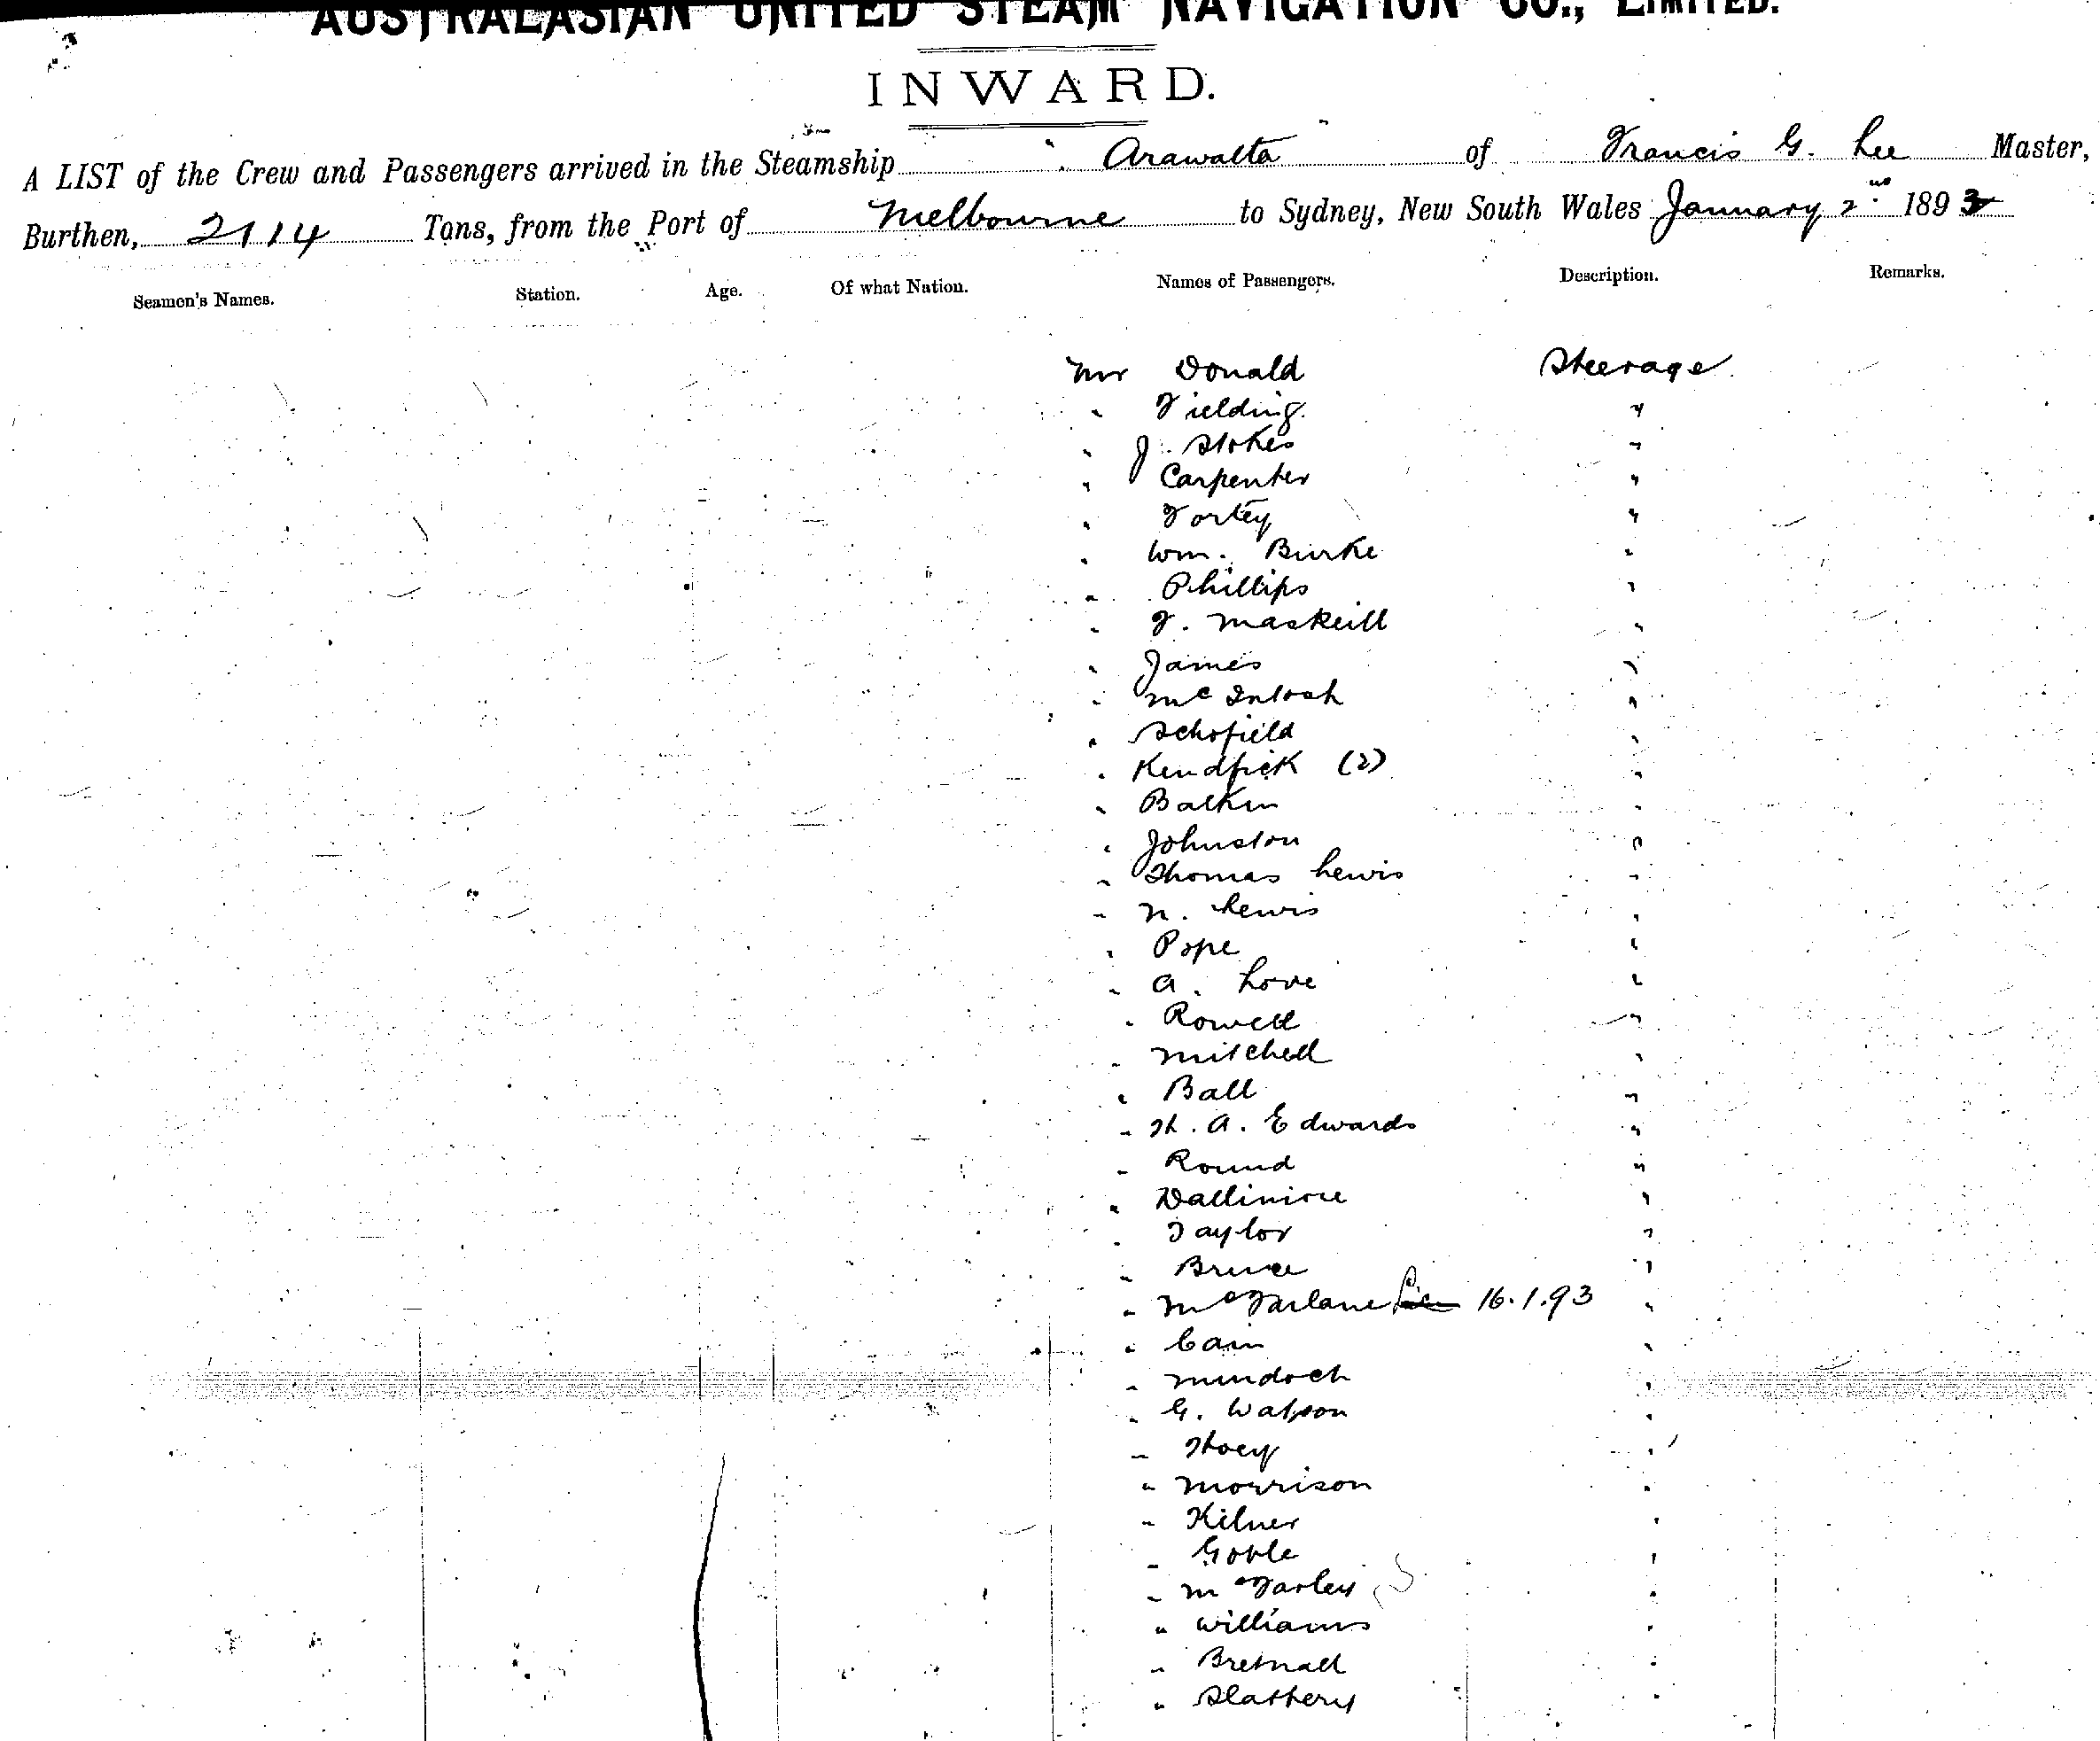 AUSTRALASIAN UNITED STEAM NAVIGATION CO., LIMITED.
INWARD.
A LIST of the Crew and Passengers arrived in the Steamship Arawatta of Francis G. Lee Master,
Burthen, 2114 Tons, from the Port of Melbourne to Sydney, New South Wales January 2nd 1893
Seamen's Names. Station. Age. Of what Nation. Names of Passengers. Description. Remarks.
Mr Donald Steerage
" Fielding "
" J. Stokes "
" Carpenter "
" Fortey "
" Wm. Burke "
" Phillips "
" F. Maskeill "
" James "
" McIntosh "
" Schofield "
" Kendrick (2) "
" Balkin "
" Johnston "
" Thomas Lewis "
" N. Lewis "
" Pope "
" A. Love "
" Rowell "
" Mitchell "
" Ball "
" H. A. Edwards "
" Round "
" Dallimore "
" Taylor "
" Bruce "
" McFarlane 16.1.93 "
" Cain "
" Murdoch "
" G. Watson "
" Hoey "
" Morrison "
" Kilner "
" Goble "
" McFarley "
" Williams "
" Bretnall "
" Slattery "